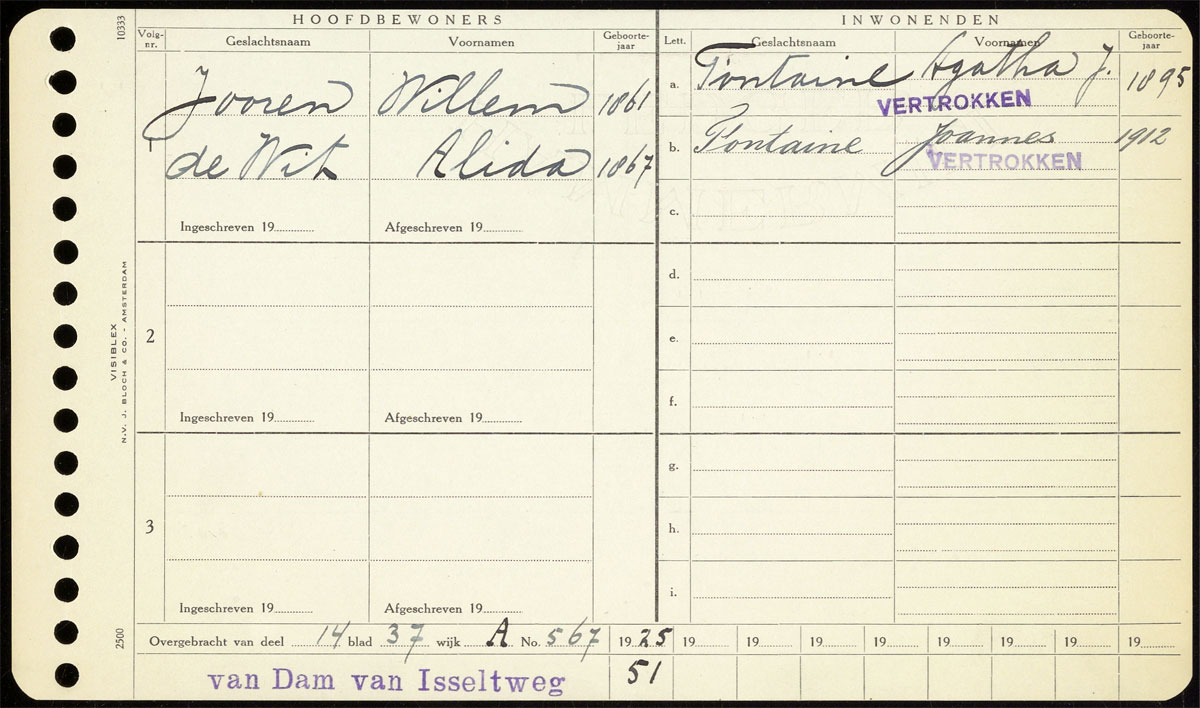 HOOFDBEWONERS
INWONENDEN
Volg-nr.
Geslachtsnaam
Voornamen
Geboorte-jaar
Lett.
Geslachtsnaam
Voornamen
Geboorte-jaar
1
Jooren Willem 1861
de Wit Alida 1867
Ingeschreven 19........ Afgeschreven 19........
a. Fontaine Agatha J. 1895
VERTROKKEN
b. Fontaine Joannes 1912
VERTROKKEN
c.
2
Ingeschreven 19........ Afgeschreven 19........
d.
e.
f.
3
Ingeschreven 19........ Afgeschreven 19........
g.
h.
i.
Overgebracht van deel 14 blad 37 wijk A No. 567
1925 19 19 19 19 19 19 19 19
van Dam van Isseltweg 51
10333
VISIBLEX
N.V. J. BLOCH & CO. - AMSTERDAM
2500